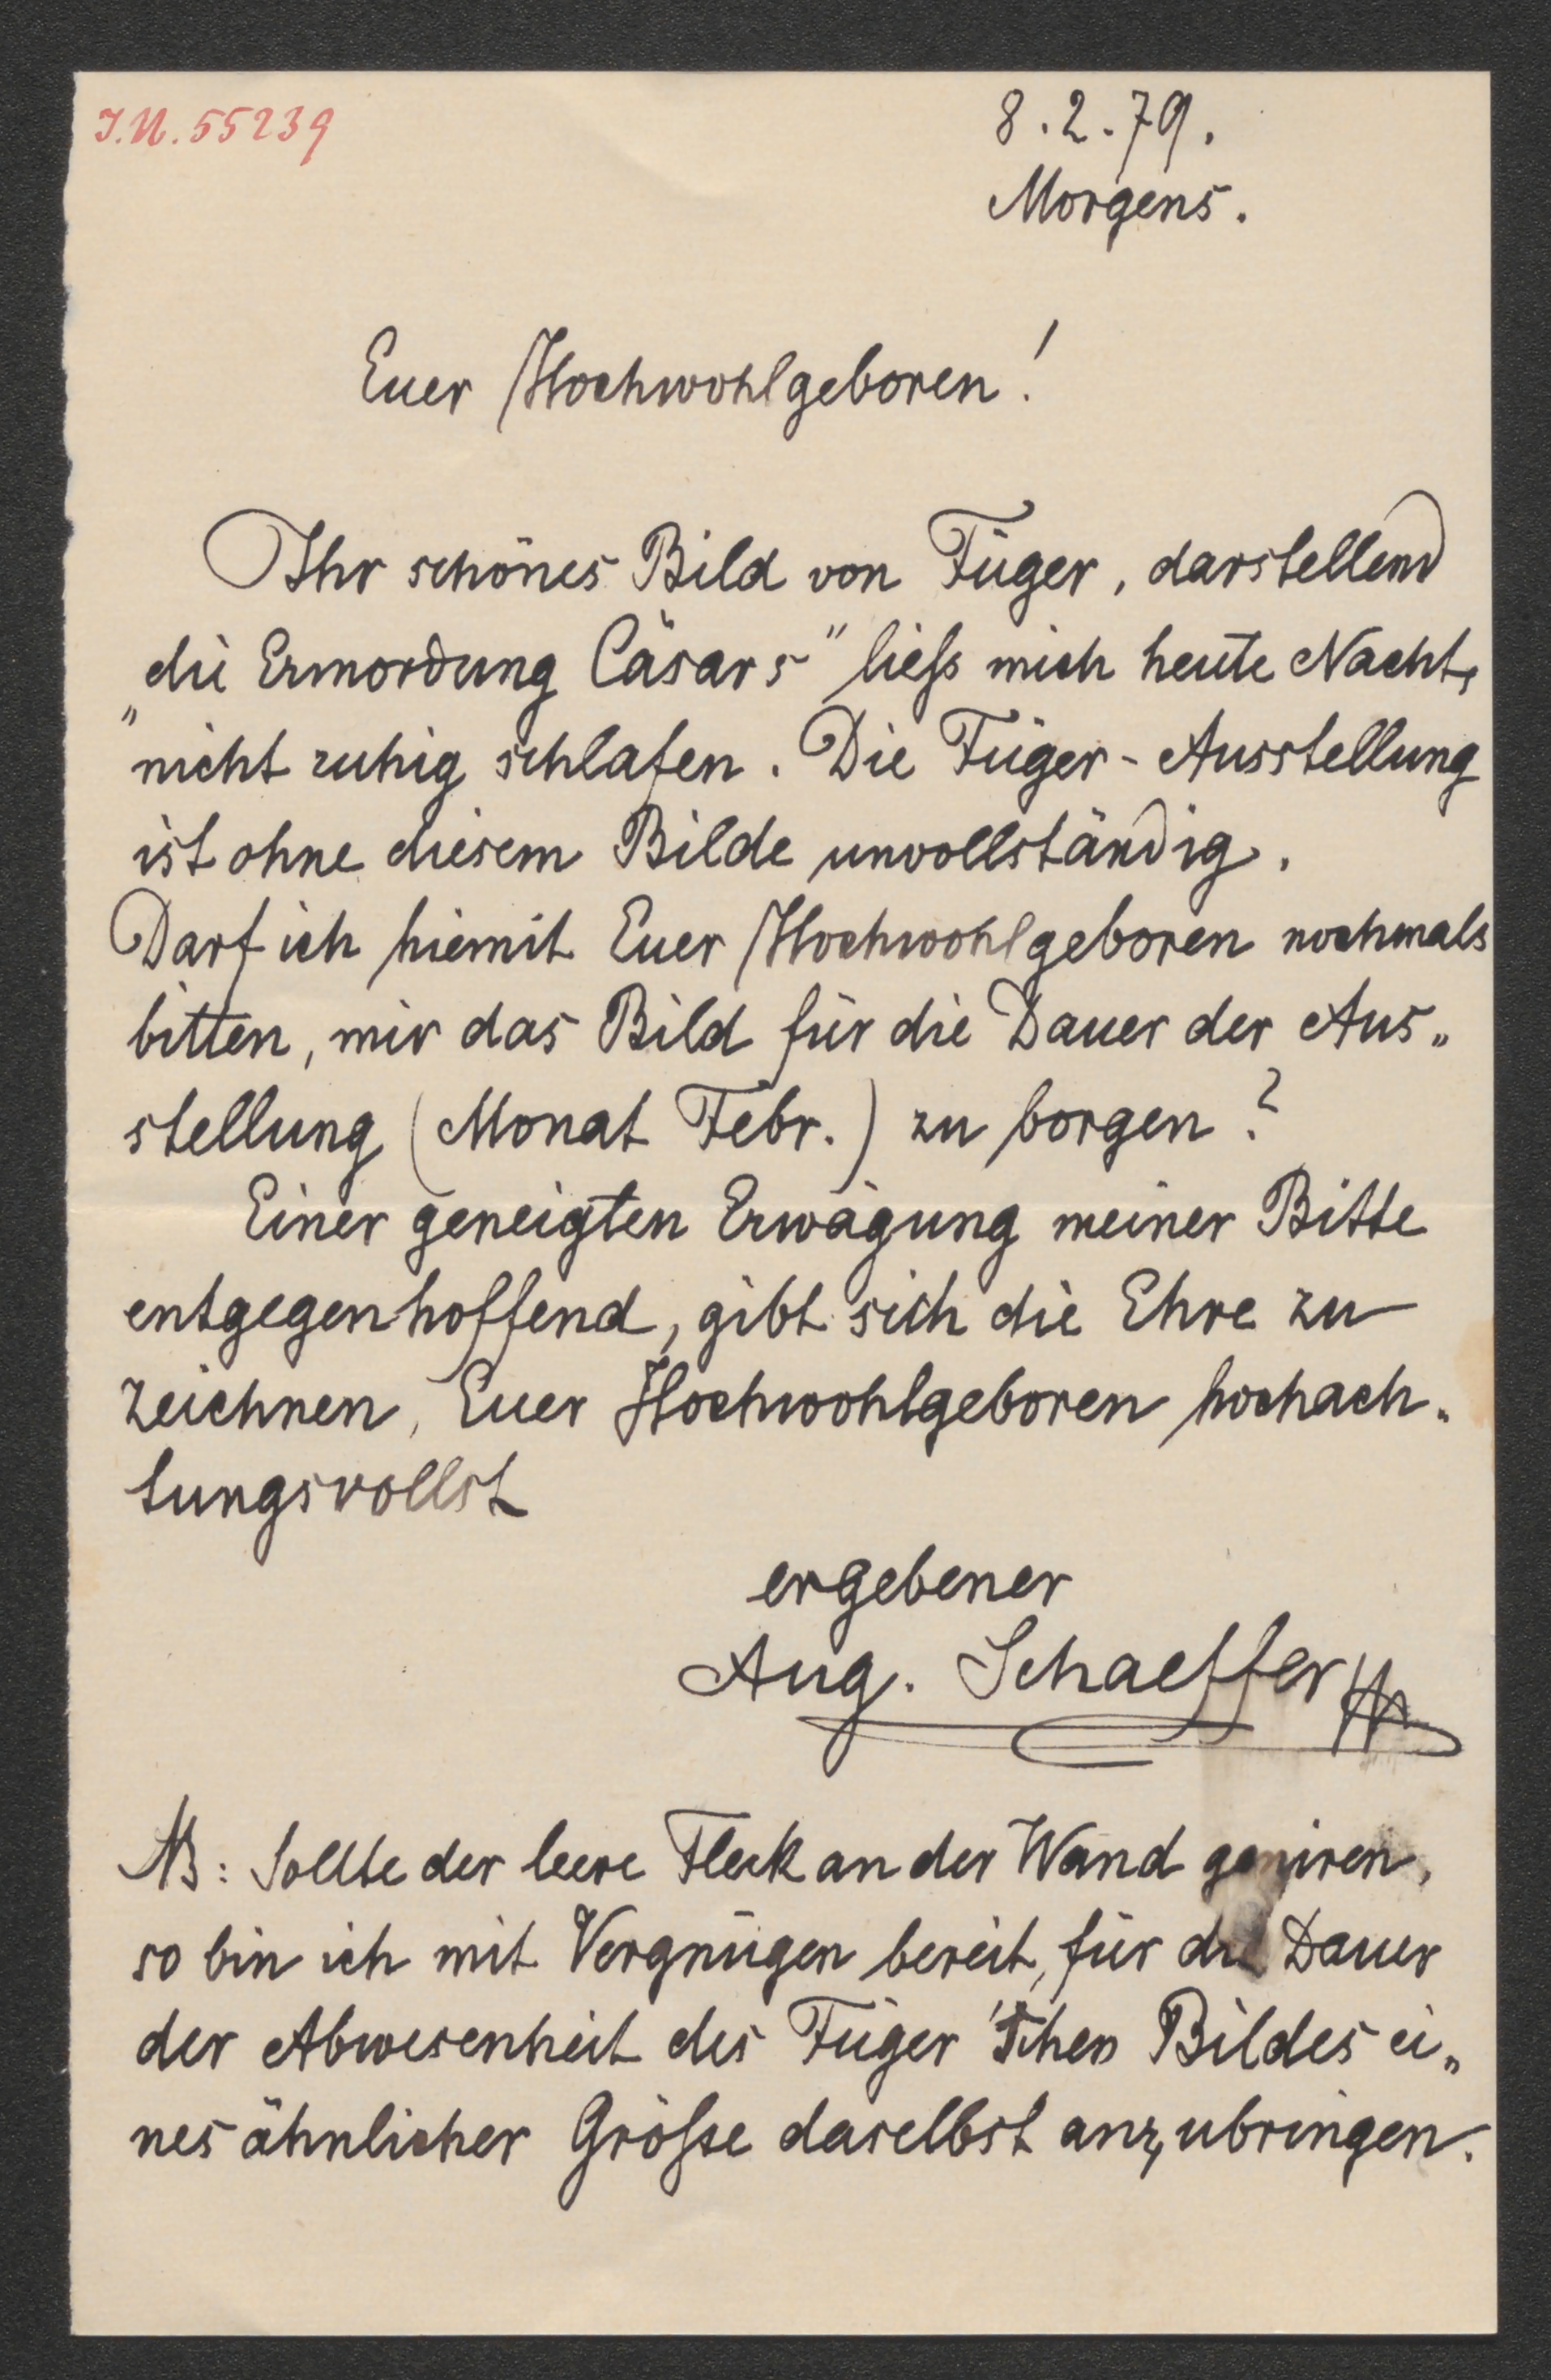 I.N. 55239
8.2.79.
Morgens.
Euer Hochwohlgeboren!
Ihr schönes Bild von Füger, darstellend
„die Ermordung Cäsars" liess mich heute Nacht,
nicht ruhig schlafen. Die Füger-Ausstellung
ist ohne diesem Bilde unvollständig.
Darf ich hiemit Euer Hochwohlgeboren nochmals
bitten, mir das Bild für die Dauer der Aus„
stellung (Monat Febr.) zu borgen?
Einer geneigten Erwägung meiner Bitte
entgegenhoffend, gibt sich die Ehre zu
zeichnen, Euer Hochwohlgeboren hochach„
tungsvollst
ergebener
Aug. Schaeffer
NB: Sollte der leere Fleck an der Wand geniren,
so bin ich mit Vergnügen bereit, für die Dauer
der Abwesenheit des Füger'schen Bildes ei„
nes ähnlicher Grösse daselbst anzubringen.